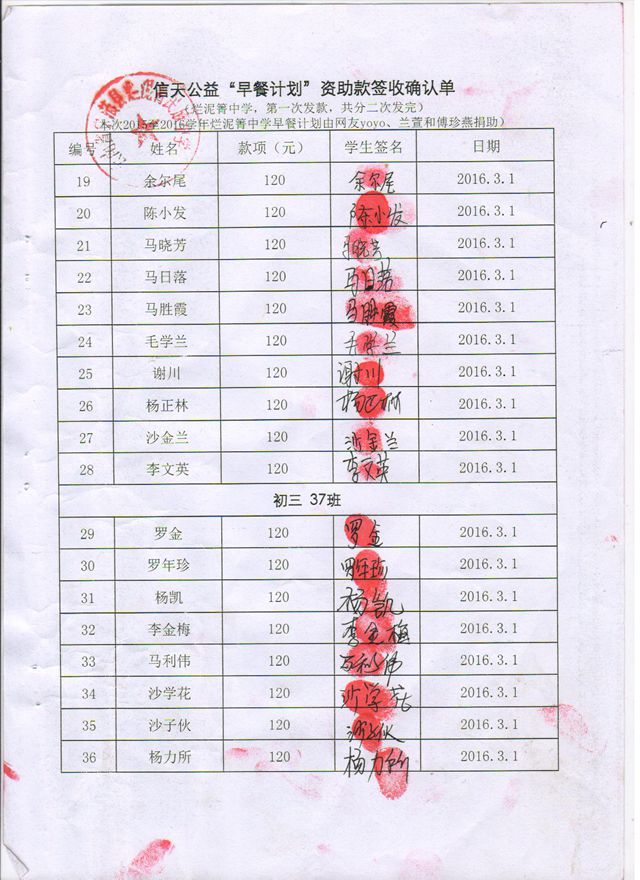 信天公益“早餐计划”资助款签收确认单
（烂泥箐中学，第一次发款，共分二次发完）
（本次2015至2016学年烂泥箐中学早餐计划由网友yoyo、兰萱和傅珍燕捐助）
编号 姓名 款项（元） 学生签名 日期
19 余尔尾 120 余尔尾 2016.3.1
20 陈小发 120 陈小发 2016.3.1
21 马晓芳 120 马晓芳 2016.3.1
22 马日落 120 马日落 2016.3.1
23 马胜霞 120 马胜霞 2016.3.1
24 毛学兰 120 毛学兰 2016.3.1
25 谢川 120 谢川 2016.3.1
26 杨正林 120 杨正林 2016.3.1
27 沙金兰 120 沙金兰 2016.3.1
28 李文英 120 李文英 2016.3.1
初三 37班
29 罗金 120 罗金 2016.3.1
30 罗年珍 120 罗年珍 2016.3.1
31 杨凯 120 杨凯 2016.3.1
32 李金梅 120 李金梅 2016.3.1
33 马利伟 120 马利伟 2016.3.1
34 沙学花 120 沙学花 2016.3.1
35 沙子伙 120 沙子伙 2016.3.1
36 杨力所 120 杨力所 2016.3.1